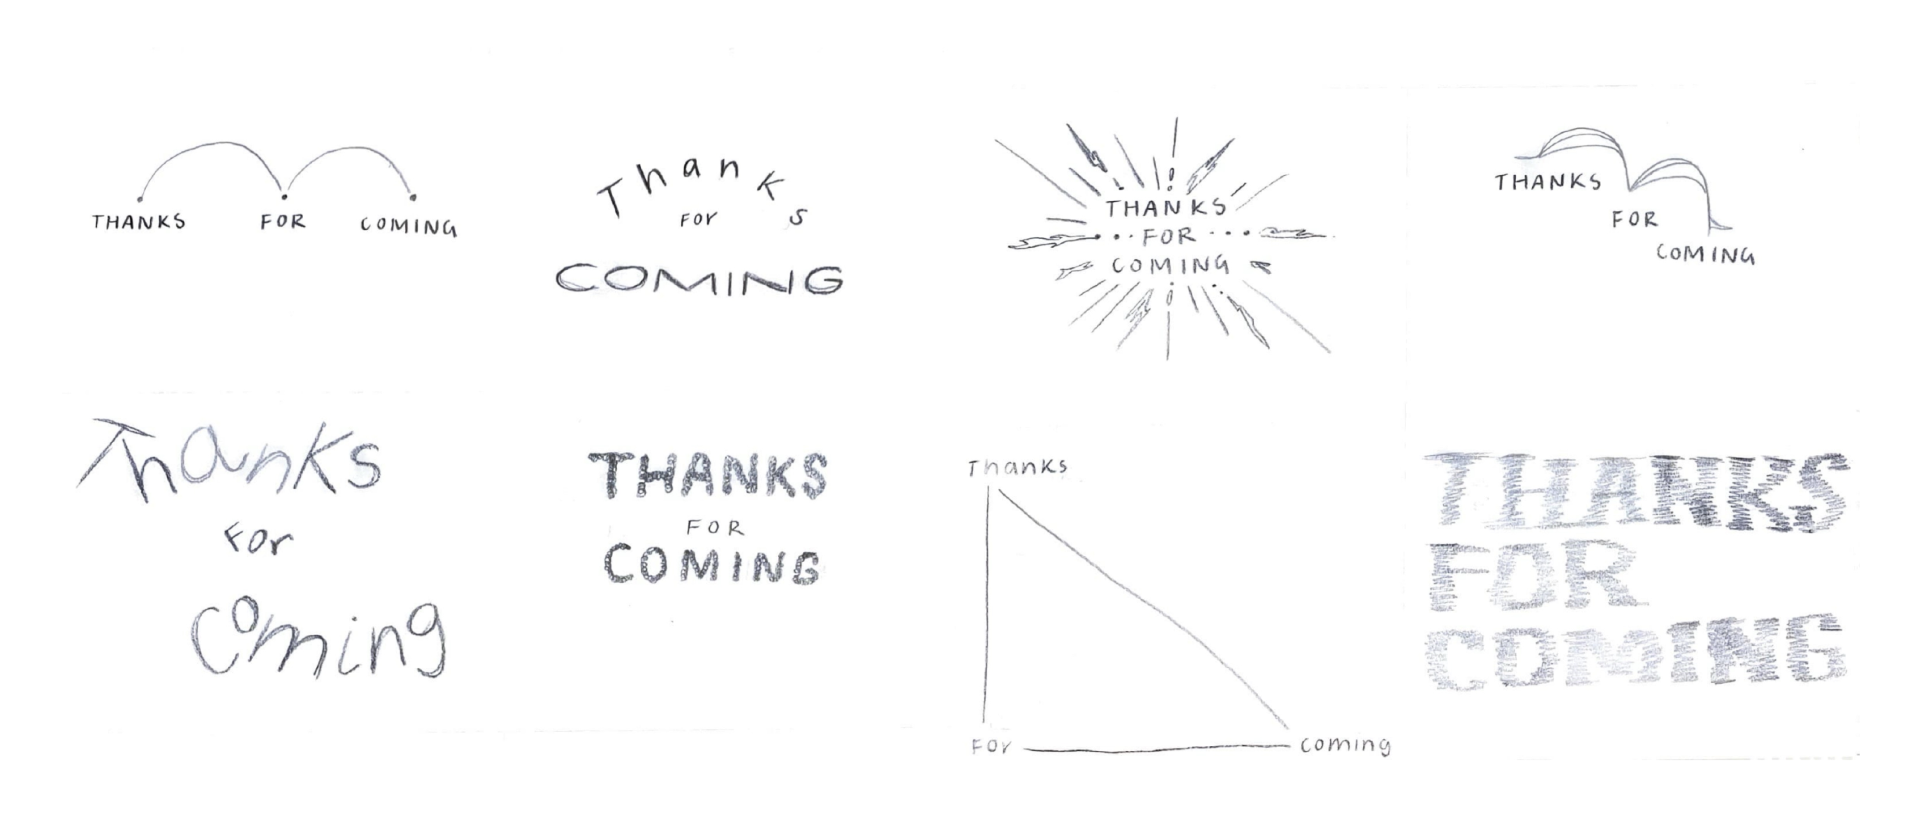 THANKS FOR COMING
Thanks
FOr
COMING
THANKS
FOR
COMING
THANKS
FOR
COMING
Thanks
For
Coming
THANKS
FOR
COMING
Thanks
For coming
THANKS
FOR
COMING